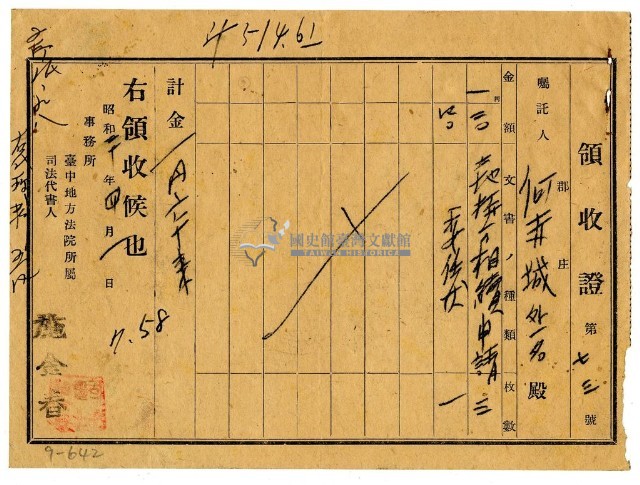 領收證 第七三號
囑託人 郡庄 何赤城外一名 殿
金額 文書ノ種類 枚數
一 三〇 土地持分相續申請 三
三〇 委任狀 一
計金 一円六十錢
右領收候也
昭和十年四月 日
事務所
臺中地方法院所屬
司法代書人
施金春
7.58
9-642
國史館臺灣文獻館
TAIWAN HISTORICA